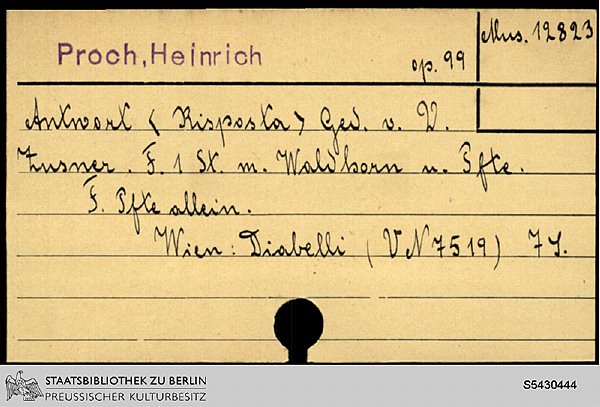 Proch, Heinrich
op. 99
Mus. 12823
Antwort < Risposta > Ged. v. V.
Zusner. F. 1 St. m. Waldhorn u. Pfte.
F. Pfte allein.
Wien: Diabelli (VN 7519) 7 S.
STAATSBIBLIOTHEK ZU BERLIN
PREUSSISCHER KULTURBESITZ
S5430444